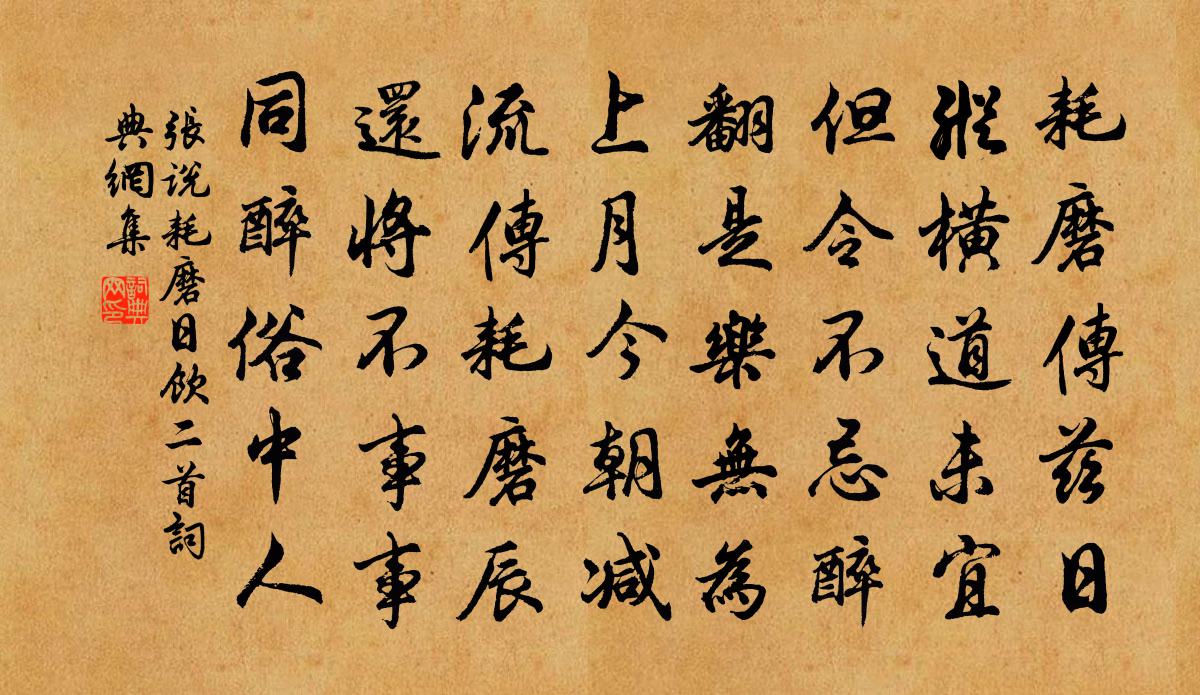 耗磨傳茲日
縱橫道未宜
但令不忌醉
翻是樂無為
上月今朝減
流傳耗磨辰
還將不事事
同醉俗中人
張说耗磨日飲二首詞
典網集
詞典
网印